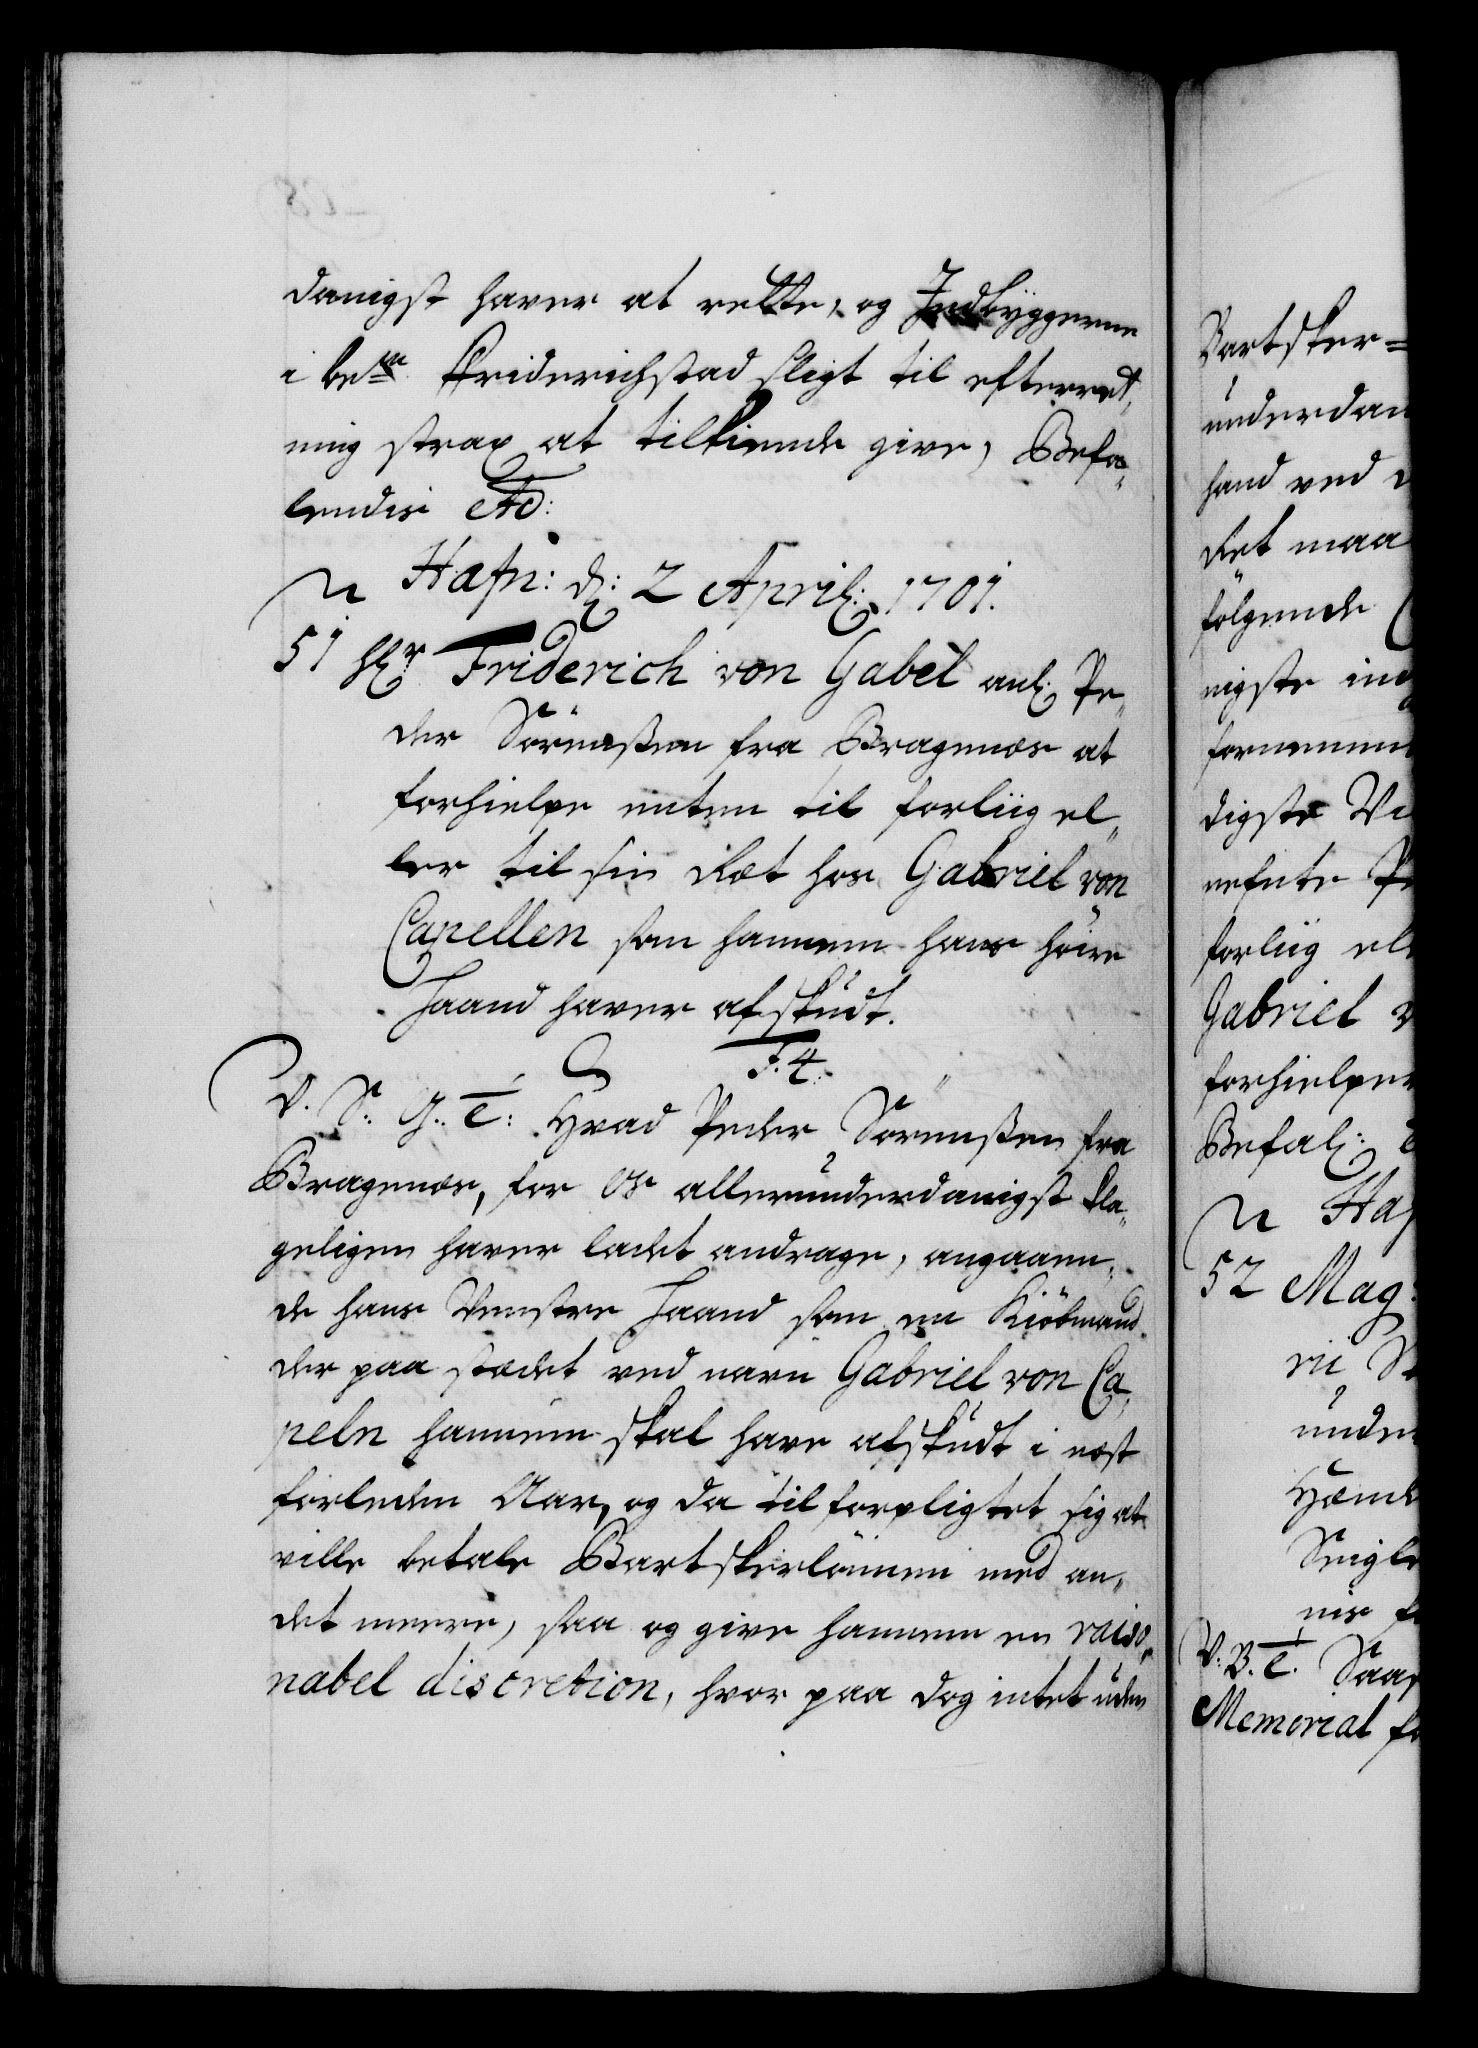 danigst haver at rette, og Indbyggerne
i bem.te Friderichstad sligt til efterret„
ning strax at tilkiende give, Befa„
lendis etc:
Hafn: d: 2 April: 1701.
51 Hr Friderich von Gabel anl: Pe„
der Sörenssen fra Bragenes at
forhielpe enten til forliig el„
ler til sin Ræt hos Gabriel von
Capellen som hannem hans höire
Haand haver afskudt.
F. 4.
V. S. G. T: Hvad Peder Sörenssen fra
Bragenes, for os allerunderdanigst kla„
geligen haver ladet andrage, angaaen„
de hans Venstre Haand som en Kiöbmand
der paa stædet ved navn Gabriel von Ca„
peln hannem skal have afskudt i næst
forleden Aar, og da tilforpligtet sig at
ville betale Bartskerlönnen med an„
det meere, saa og give hannem en raiso„
nabel discretion, hvor paa dog intet uden
Bartsker=
underdan
hand ved
Ret maa
fölgende
nigste in
fornemm
digste Vi
nefnte Pe
forliig el
Gabriel v
forhielpe
Befal:
Haf
52 Mag:
ric S
under
Hæmb
Seigl
nis f
V. B. T. Saas
Memorial f